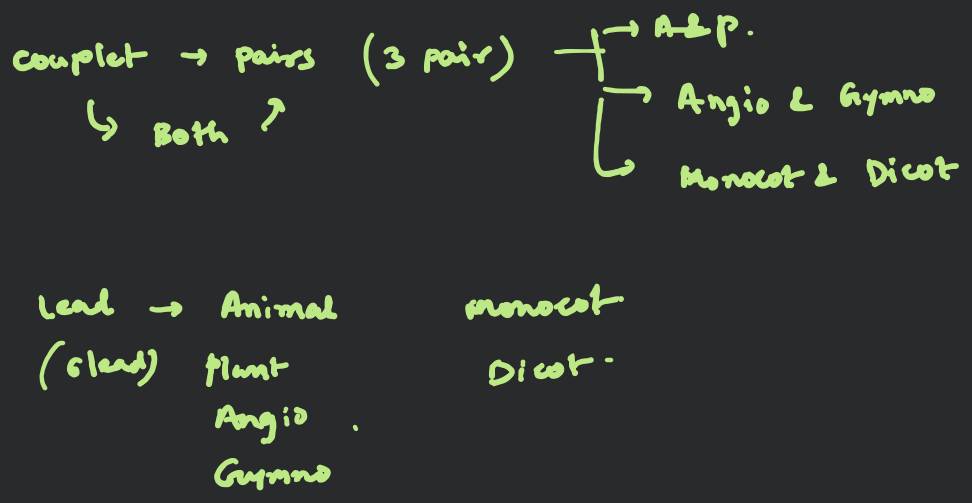 couplet → pairs (3 pair) → A & P.
Both → Angio & Gymno
→ Monocot & Dicot
Lead → Animal monocot
(6 lead) Plant Dicot
Angio
Gymno